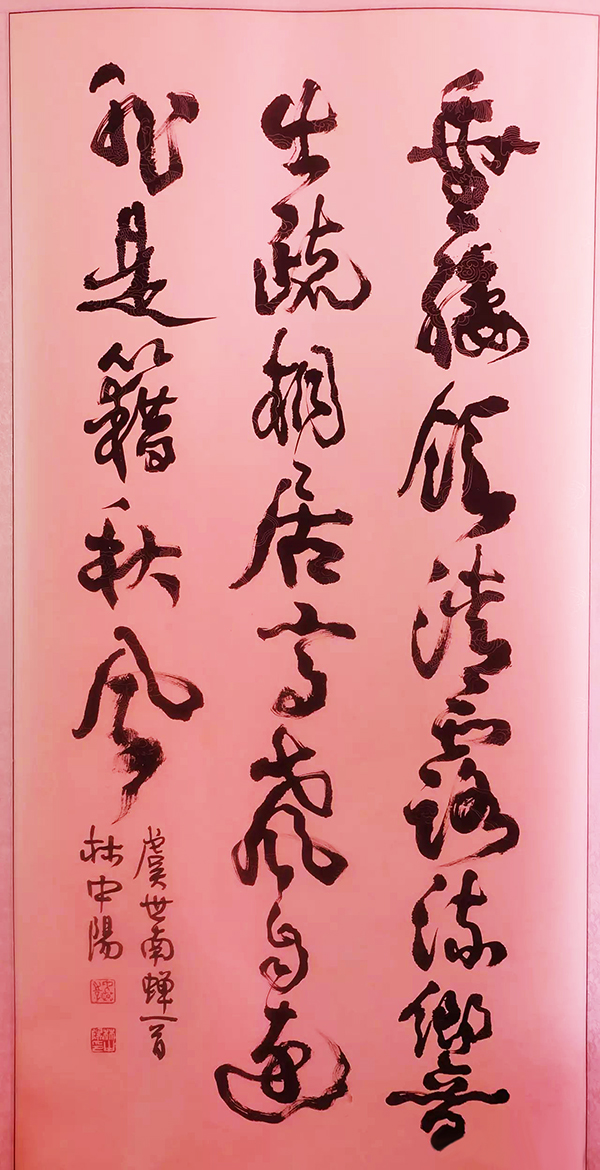 垂緌飲清露流響
出疏桐居高聲自遠
非是籍秋風
虞世南蝉一首
林中陽